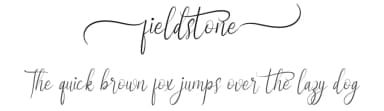 fieldstone
The quick brown fox jumps over the lazy dog